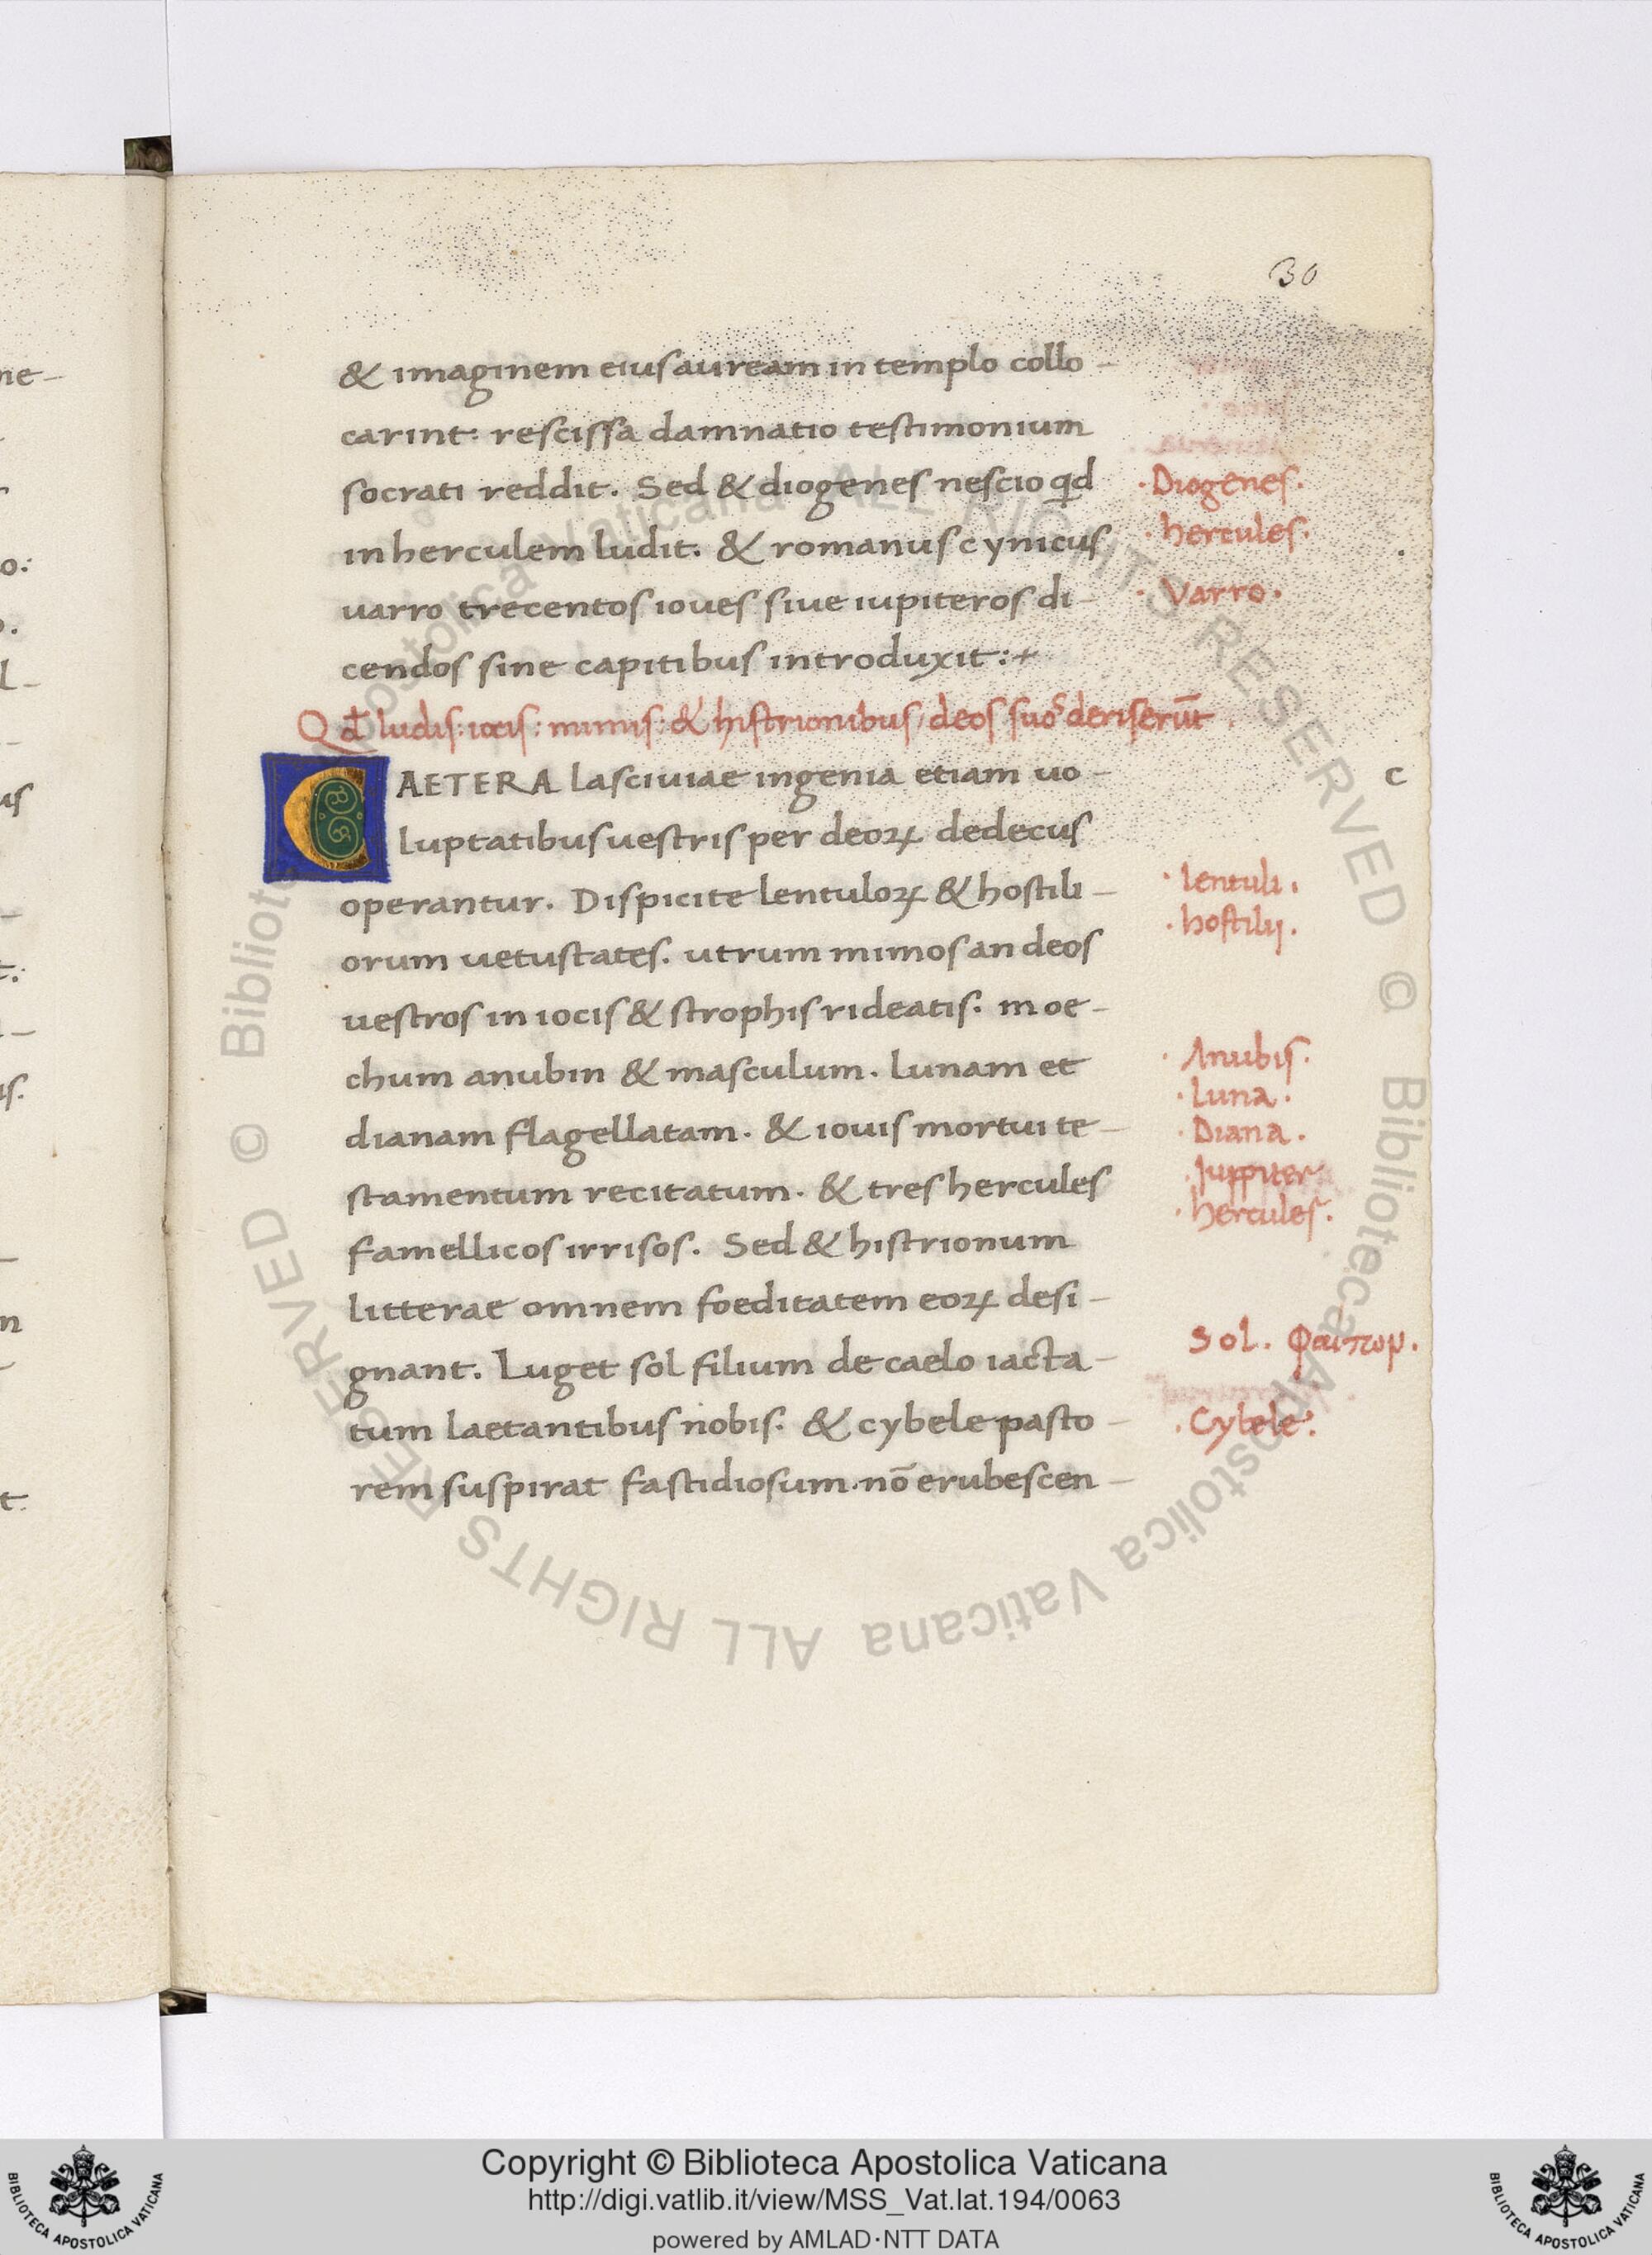 30
& imaginem eius auream in templo collo-
carint: rescissa damnatio testimonium
socrati reddit. Sed & diogenes nescio qd
in herculem ludit. & romanus cynicus
uarro trecentos ioues siue iupiteros di-
cendos sine capitibus introduxit:
Qđ ludis: iocis: mimis: & histrionibus/ deos suos deriserūt.
CAETERA lasciuiae ingenia etiam uo-
luptatibus uestris per deoꝝ dedecus
operantur. Dispicite lentuloꝝ & hostili-
orum uetustates. utrum mimos an deos
uestros in iocis & strophis rideatis. moe-
chum anubin & masculum. Lunam et
dianam flagellatam. & iouis mortui te-
stamentum recitatum. & tres hercules
famellicos irrisos. Sed & histrionum
litterae omnem foeditatem eoꝝ desi-
gnant. Luget sol filium de caelo iacta-
tum laetantibus nobis. & cybele pasto-
rem suspirat fastidiosum. nō erubescen-
·Diogenes·
·hercules·
·Varro·
c
·lentuli·
·hostilij·
·Anubis·
·Luna·
·Diana·
·Juppiter
·hercules·
Sol.
·Cybele·
Copyright © Biblioteca Apostolica Vaticana
http://digi.vatlib.it/view/MSS_Vat.lat.194/0063
powered by AMLAD·NTT DATA
BIBLIOTECA APOSTOLICA VATICANA
BIBLIOTECA APOSTOLICA VATICANA
© Biblioteca Apostolica Vaticana ALL RIGHTS RESERVED
© Biblioteca Apostolica Vaticana ALL RIGHTS RESERVED